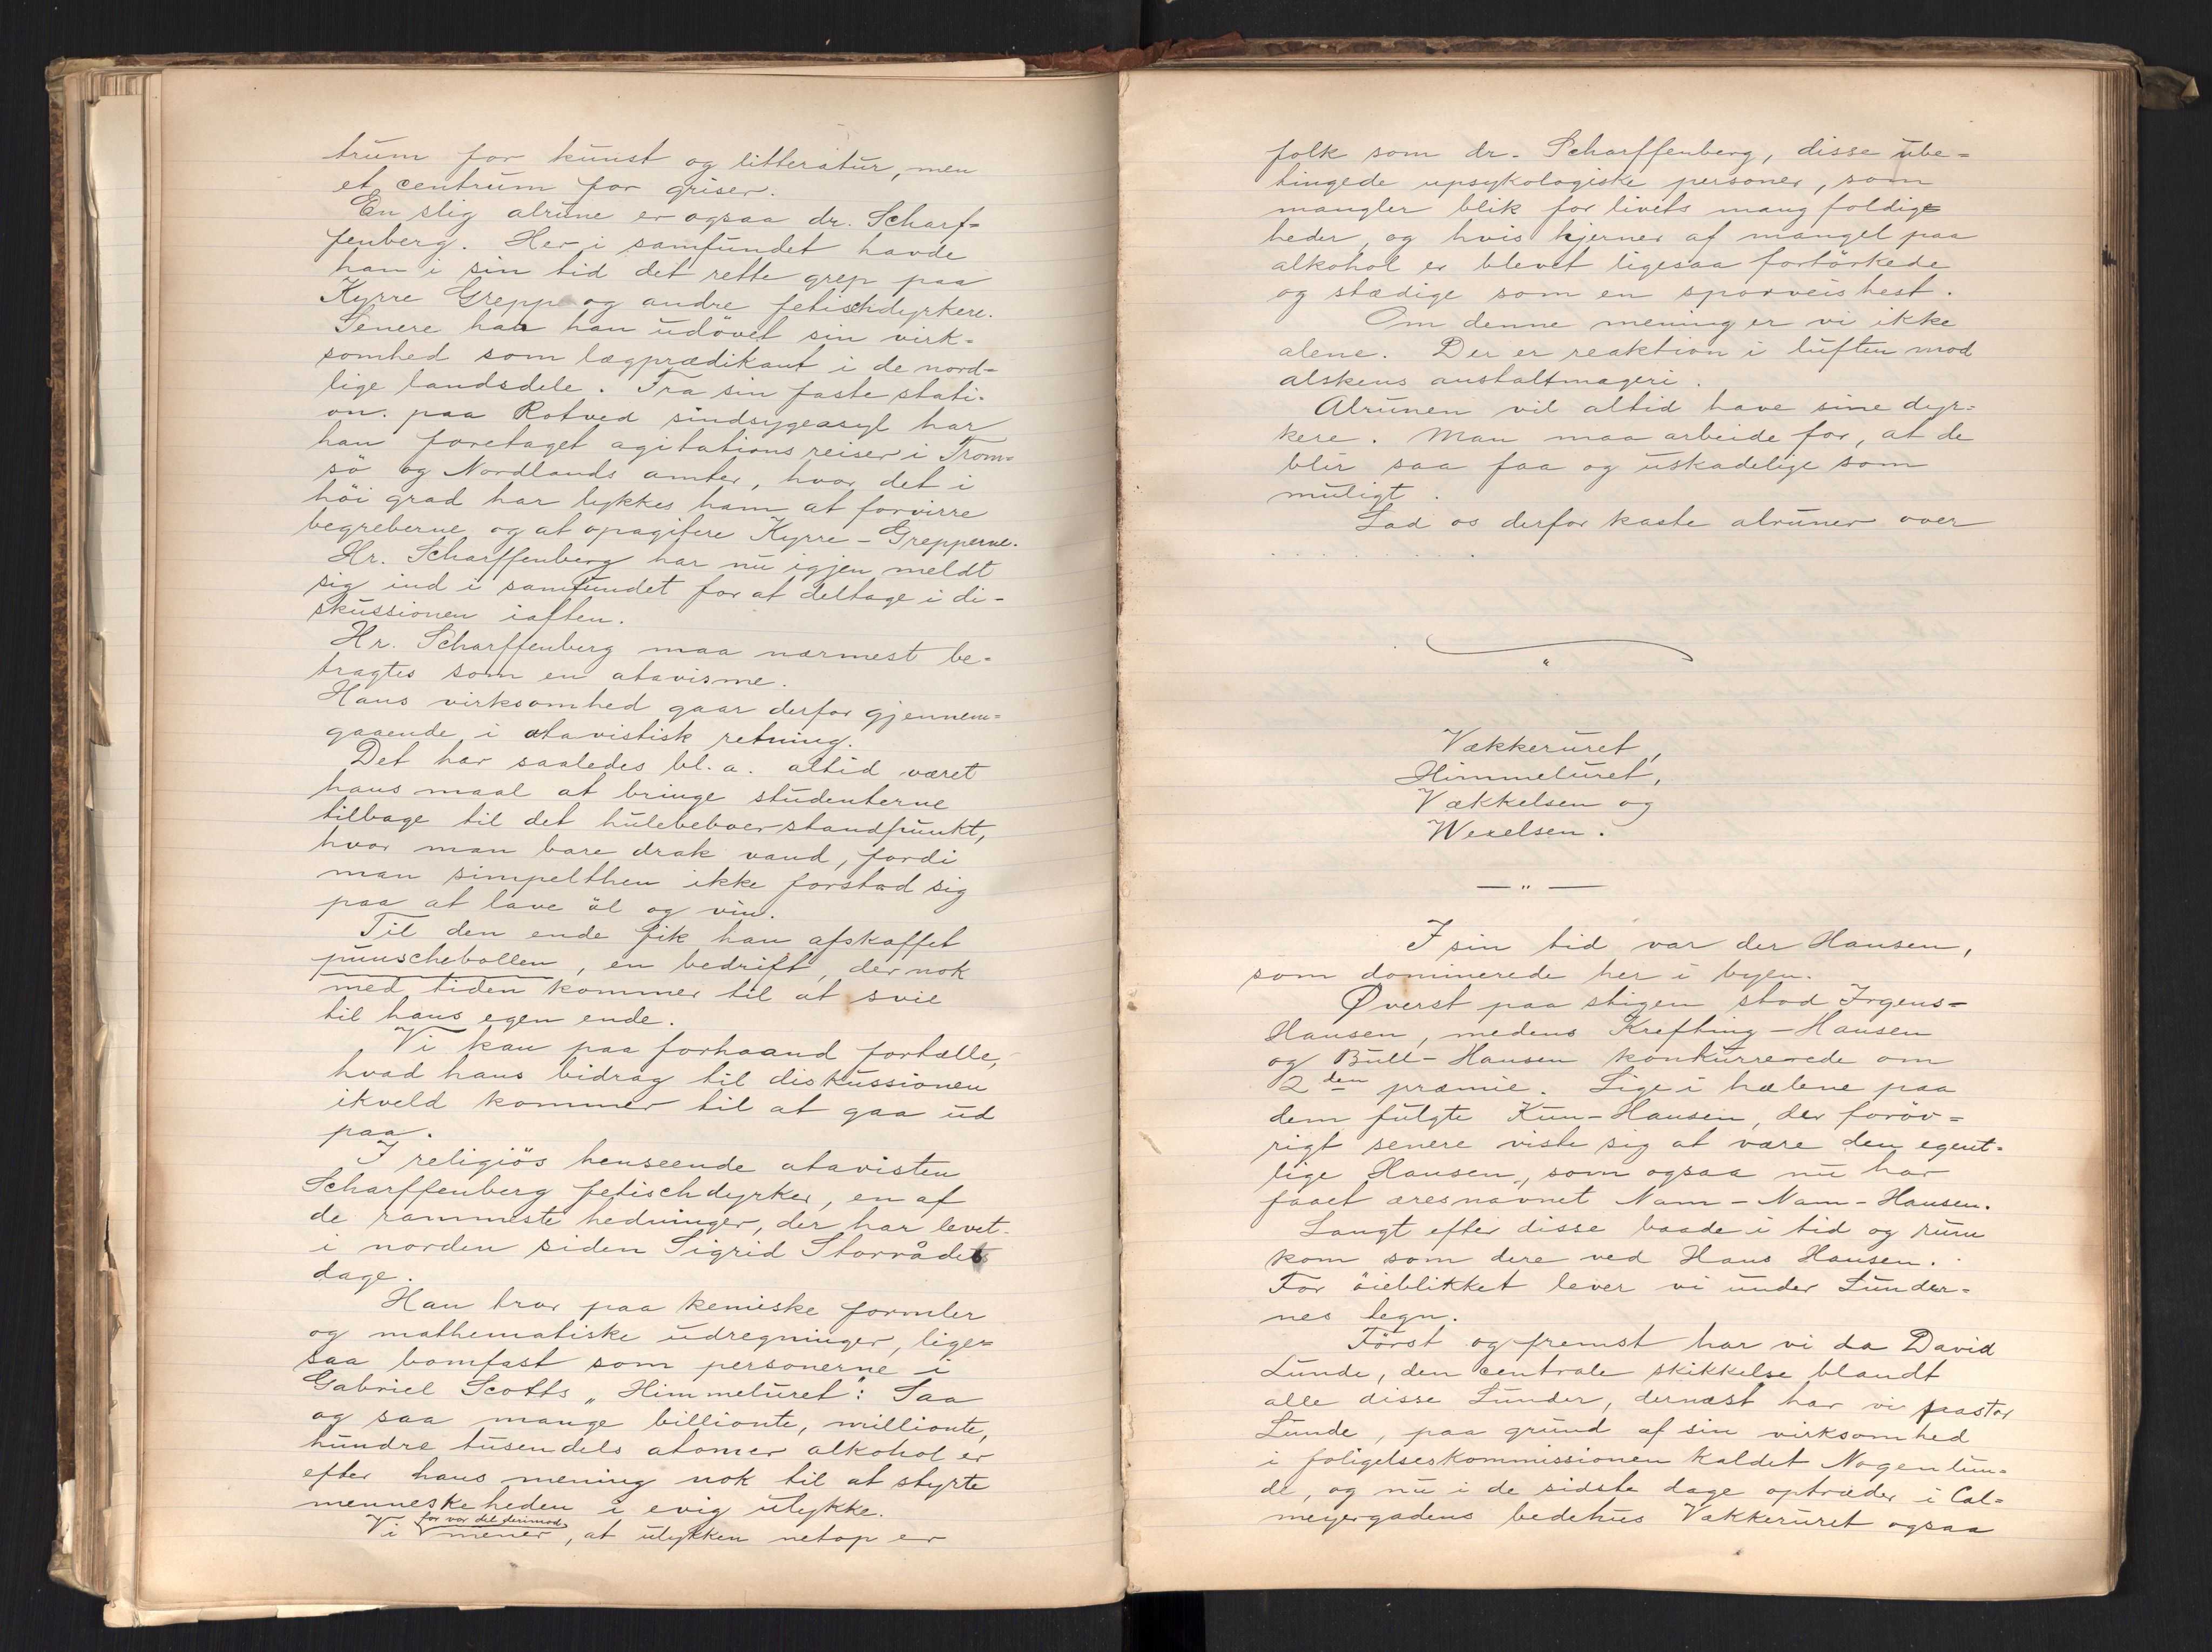 trum for kunst og litteratur, men
et centrum for griser.
En slig alrune er ogsaa dr. Scharf=
fenberg. Her i samfundet havde
han i sin tid det rette grep paa
Kyrre Greppe og andre fetischdyrkere.
Senere har han udövet sin virk=
somhed som lægprædikant i de nord=
lige landsdele. Fra sin faste stati-
on. paa Rotved sindsygeasyl har
han foretaget agitationsreiser i Trom=
sö og Nordlands amter, hvor det i
höi grad har lykkes ham at forvirre
begreberne og at opagitere Kyrre-Grepperne.
Hr. Scharffenberg har nu igjen meldt
sig ind i samfundet for at deltage i di-
skussionen iaften.
Hr. Scharffenberg maa nærmest be-
tragtes som en atavisme.
Hans virksomhed gaar derfor gjennem=
gaaende i atavistisk retning.
Det har saaledes bl. a. altid været
hans maal at bringe studenterne
tilbage til det huleboerstandpunkt,
hvor man bare drak vand, fordi
man simpelthen ikke forstod sig
paa at lave öl og vin.
Til den ende fik han afskaffet
punschebollen, en bedrift, der nok
med tiden kommer til at svie
til hans egen ende.
Vi kan paa forhaand fortælle,
hvad hans bidrag til diskussionen
ikveld kommer til at gaa ud
paa.
I religiös henseende atavisten
Scharffenberg fetischdyrker, en af
de rammeste hedninger, der har levet
i norden siden Sigrid Storrådes
dage.
Han tror paa kemiske formler
og mathematiske udregninger, lige=
saa bomfast som personerne i
Gabriel Scotts „Himmeluret": Saa
og saa mange billionte, millionte,
hundre tusendels atomer alkohol er
efter hans mening nok til at styrte
menneskeheden i evig ulykke.
Vi for vor del derimod mener, at ulykken netop er
folk som dr. Scharffenberg, disse ube=
tingede upsykologiske personer, som
mangler blik for livets mangfoldig=
heder, og hvis hjerner af mangel paa
alkohol er blevet ligesaa fortörkede
og stædige som en sporveishest.
Om denne mening er vi ikke
alene. Der er reaktion i luften mod
alskens anstaltmageri.
Alrunen vil altid have sine dyr=
kere. Man maa arbeide for, at de
blir saa faa og uskadelige som
muligt.
Lad os derfor kaste alruner over
. . . . . . . . . .
Vækkeruret,
Himmeluret,
Vækkelsen og
Wexelsen.
— „ —
I sin tid var der Hansen,
som dominerede her i byen.
Øverst paa stigen stod Irgens=
Hansen, medens Krefting-Hansen
og Bull-Hansen konkurrerede om
2den præmie. Lige i hælene paa
dem fulgte Kun-Hansen, der foröv=
rigt senere viste sig at være den egent-
lige Hansen, som ogsaa nu har
faaet æresnavnet Nam-Nam-Hansen.
Langt efter disse baade i tid og rum
kom som dere ved Hans Hansen.
For öieblikket lever vi under Lunder=
nes tegn.
Först og fremst har vi da David
Lunde, den centrale skikkelse blandt
alle disse Lunder, dernæst har vi pastor
Lunde, paa grund af sin virksomhed
i foligelseskommissionen kaldet Nogenlun=
de, og nu i de sidste dage optræder i Cal=
meyergadens bedehus Vækkeruret ogsaa